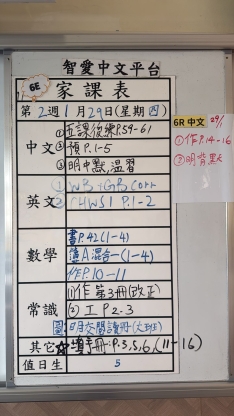 智愛中文平台
6E
家課表
第2週1月29日(星期四)
6R 中文 29/1
①作P.14-16
③明背默
中文
①五課復練P.59-61
②預P.1-5
③明中默,溫習
英文
① WB + GB corr
② CHWS1 P.1-2
數學
書P.42(1-4)
值A混合一(1-4)
作P.10-11
常識
(1)作 第3冊(改正)
(2) 工 P2-3
圖:明交閱讀冊(大班)
其它
手冊:P.3,5,6,(11-16)
值日生
5